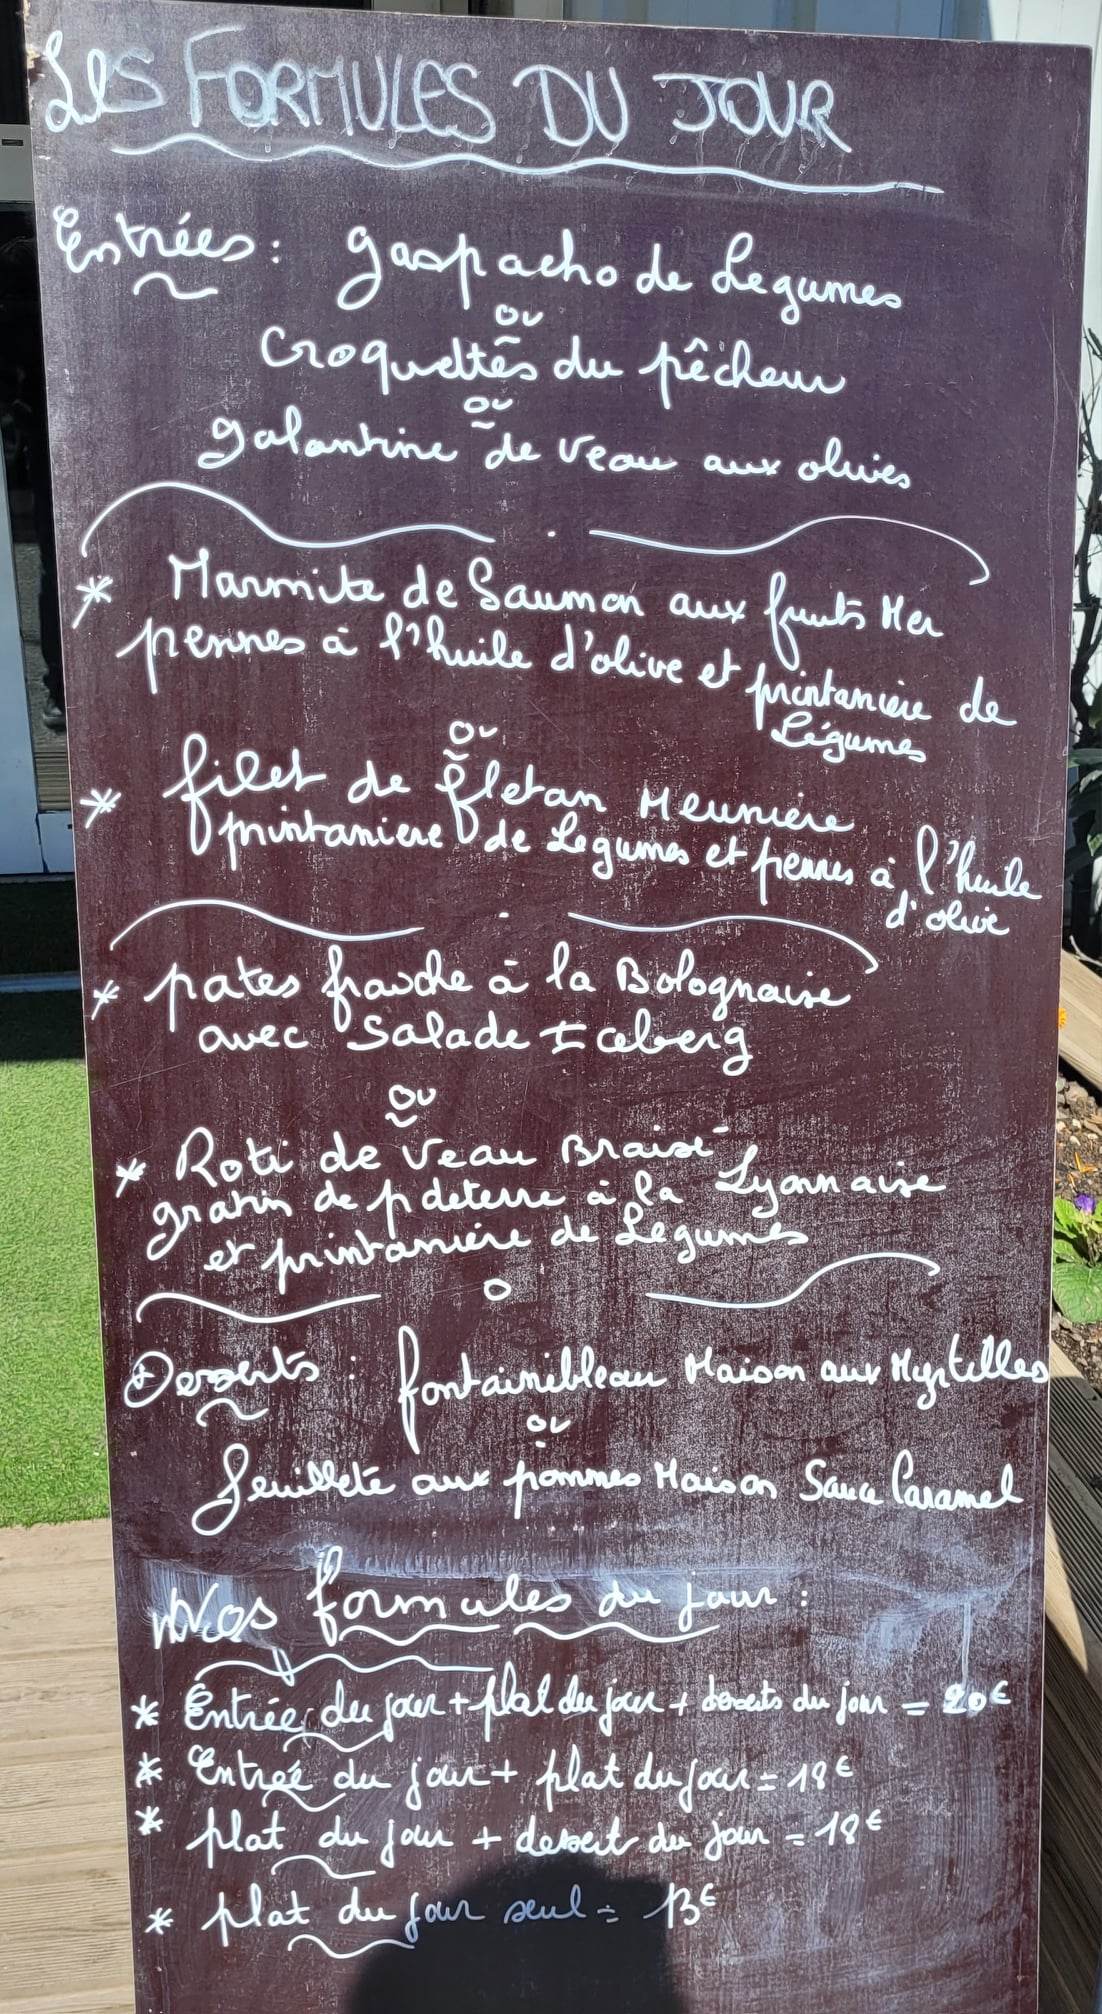 Les FORMULES DU JOUR
Entrées : gaspacho de Legumes
ou
Croquettes du pêcheur
ou
galantine de veau aux olives
* Marmite de Saumon aux fruits Mer
pennes à l'huile d'olive et printaniere de
Légumes
ou
* filet de fletan Meuniere
printaniere de Legumes et pennes à l'huile
d'olive
* pates fraiche à la Bolognaise
avec Salade Iceberg
ou
* Roti de veau Braisé
gratin de p deterre à la Lyonnaise
et printanière de Legumes
Desserts : fontainebleau Maison aux Myrtilles
ou
feuilleté aux pommes Maison Sauce Caramel
Nos formules du jour :
* Entrée du jour + plat du jour + desserts du jour = 20€
* Entrée du jour + plat du jour = 18€
* plat du jour + dessert du jour = 18€
* plat du jour seul = 13€